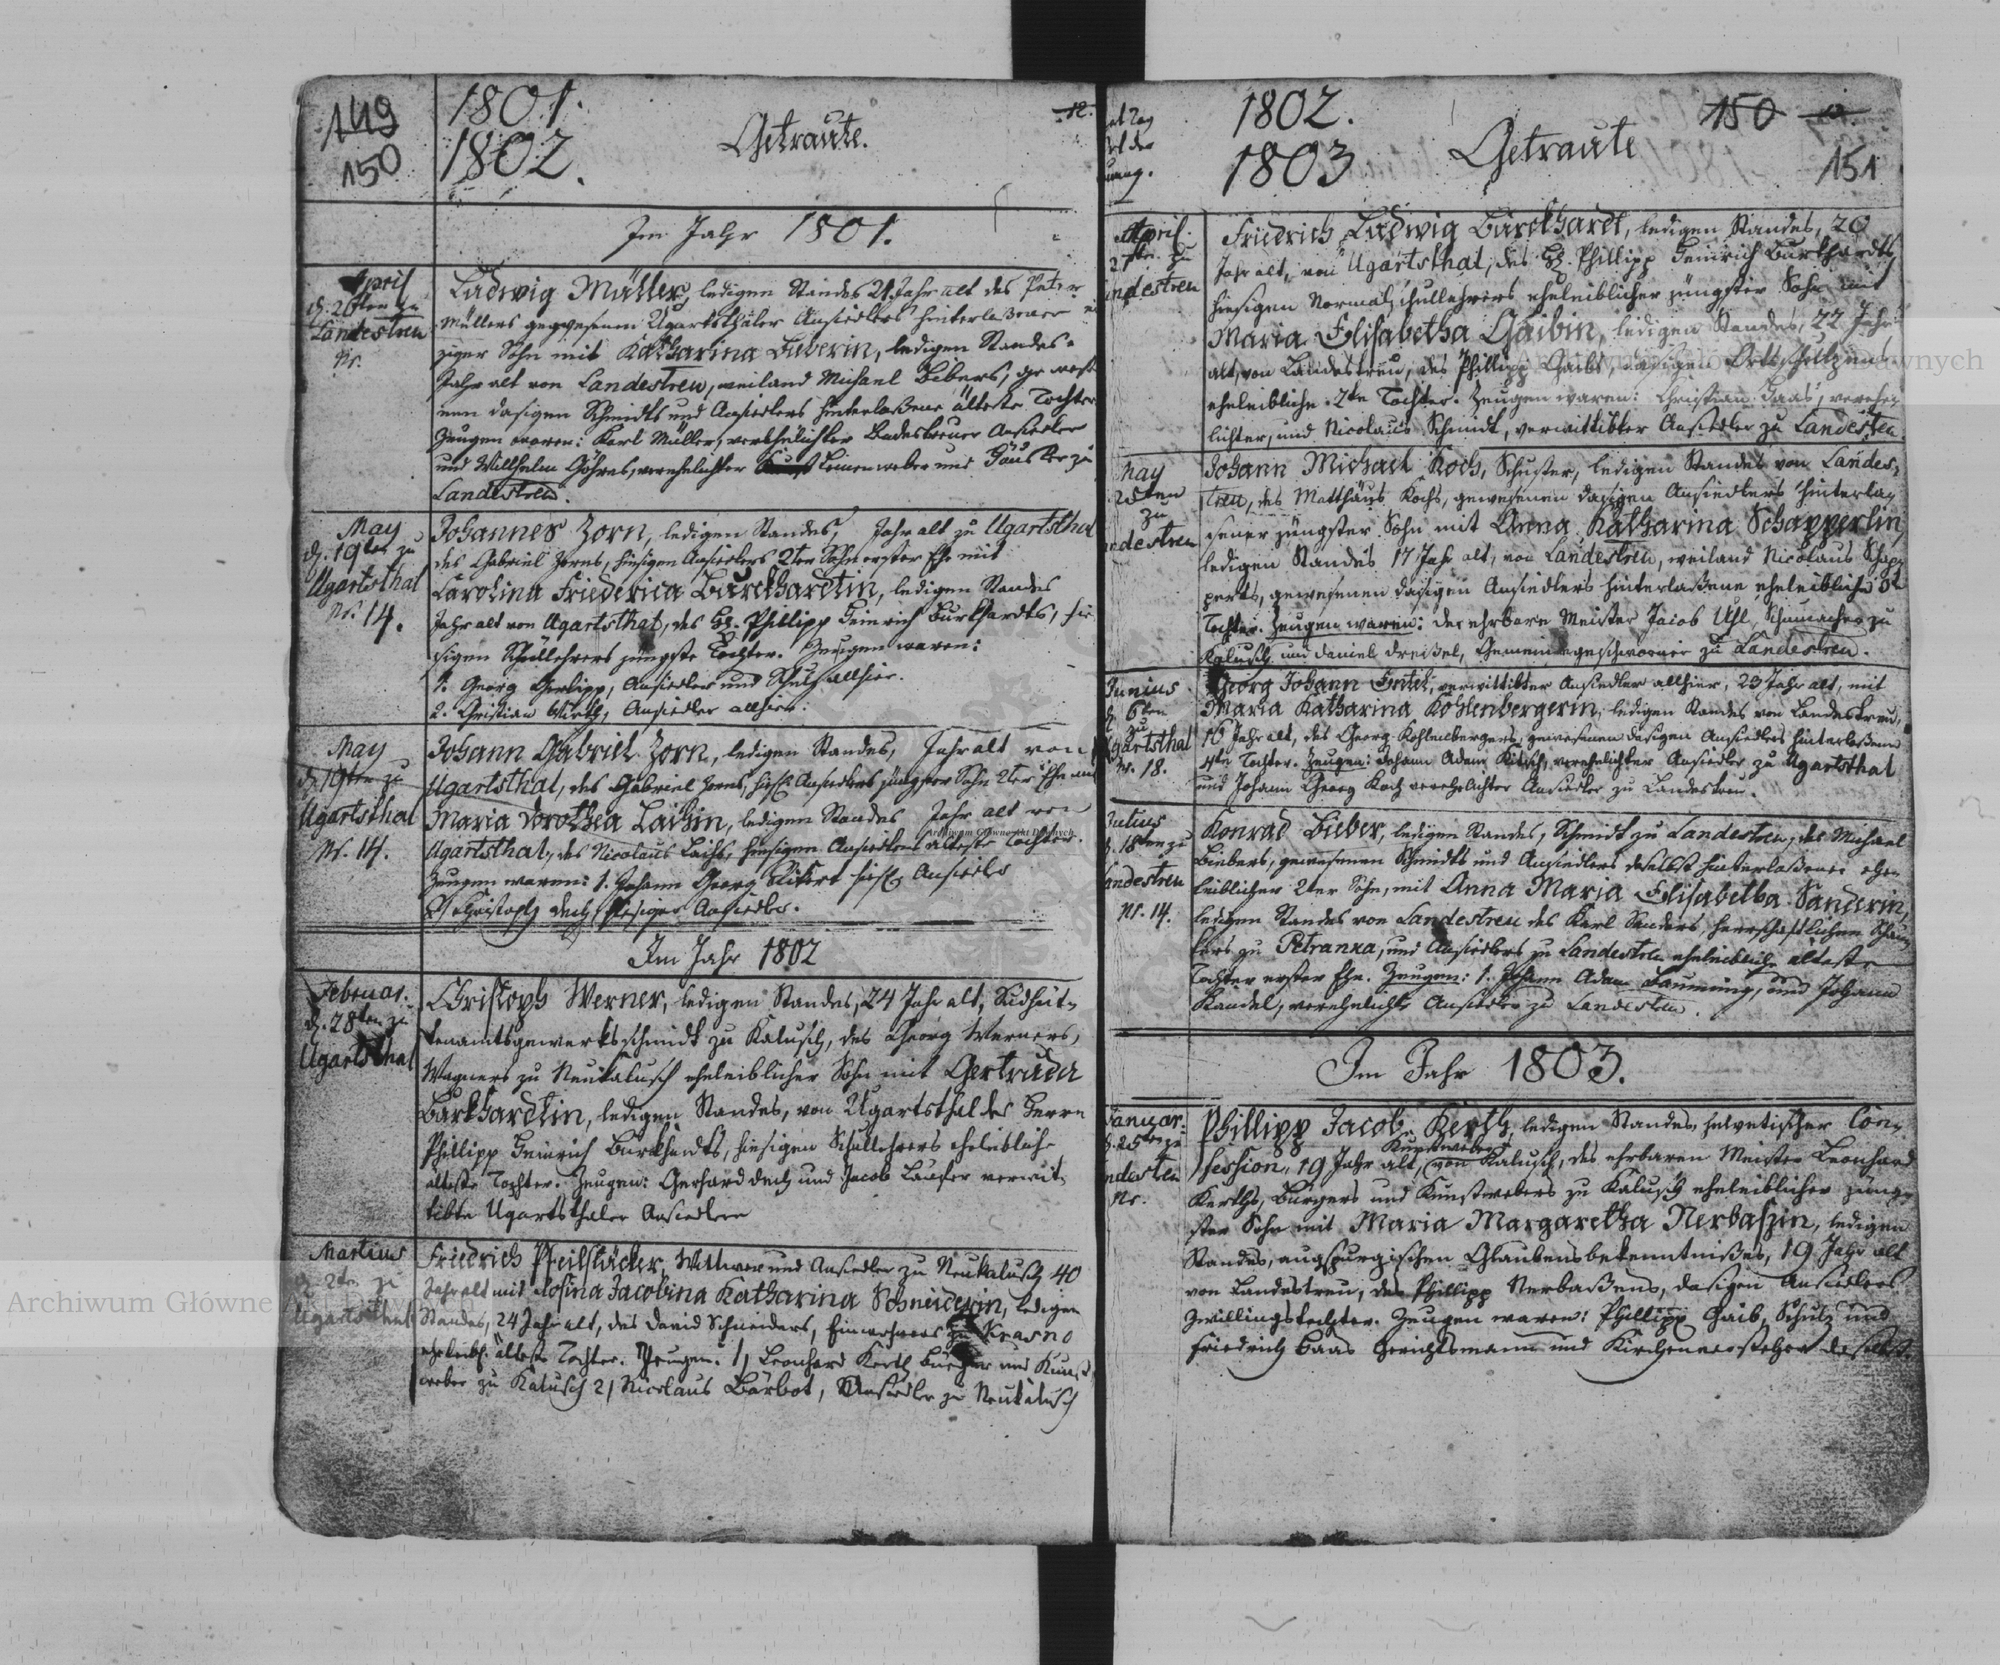 149
150
1801.
1802.
Getraute.
12.
Im Jahr 1801.
April
d. 26ten zu
Landestreu
Nr.
Ludwig Müller, ledigen Standes 21 Jahr alt des Peter
Müllers gewesenen Ugartsthaler Ansiedlers hinterlaßener
ziger Sohn mit Katharina Bieberin, ledigen Standes
Jahr alt von Landestreu, weiland Michael Biebers, gewese
nen dasigen Schmidts und Ansiedlers hinterlaßene älteste Tochter
Zeugen waren: Karl Müller, verehelichter Landestreuer Ansiedler
und Willhelm Göhres, verehelichter Leinenweber und Häusler zu
Landestreu.
May
d. 19ten zu
Ugartsthal
Nr. 14.
Johannes Zorn, ledigen Standes, Jahr alt zu Ugartsthal
des Gabriel Zorns, hiesigen Ansiedlers 2ter Sohn erster Ehe mit
Carolina Friederica Burckhardtin, ledigen Standes
Jahr alt von Ugartsthal, des H. Phillipp Heinrich Burkhardts, hie
sigen Schullehrers jüngste Tochter. Zeugen waren:
1. Georg Gerlipp, Ansiedler und Schulz allhier.
2. Christian Wirth, Ansiedler allhier.
May
d. 19ten zu
Ugartsthal
Nr. 14.
Johann Gabriel Zorn, ledigen Standes, Jahr alt von
Ugartsthal, des Gabriel Zorns, hies. Ansiedlers jüngster Sohn 2ter Ehe mit
Maria Dorothea Laihin, ledigen Standes Jahr alt von
Ugartsthal, des Nicolaus Laihs, hiesigen Ansiedlers älteste Tochter.
Zeugen waren: 1. Johann Georg hies. Ansiedler
Christoph Dech hiesiger Ansiedler.
Im Jahr 1802
Februar.
d. 28ten zu
Ugartsthal
Christoph Werner, ledigen Standes, 24 Jahr alt, Sudhüt-
tenamtsgewerksschmidt zu Kalusch, des Georg Werners,
Wagners zu Neukalusch eheleiblicher Sohn mit Gertruda
Burkhardtin, ledigen Standes, von Ugartsthal des Herrn
Phillipp Heinrich Burkhardts, hiesigen Schullehrers eheleibliche
älteste Tochter. Zeugen: Gerhard Dech und Jacob Laufer verwit-
tibte Ugartsthaler Ansiedlere
Martius
d. 2ten zu
Ugartsthal
Friedrich Pfeilstäcker, Wittwer und Ansiedler zu Neukalusch 40
Jahr alt mit Rosina Jacobina Katharina Schneiderin, ledigen
Standes, 24 Jahr alt, des David Schneiders, Einwohners zu Krasno
eheleibl. älteste Tochter. Zeugen. 1/ Leonhard Kerth Bürger und Kunst
weber zu Kalusch 2/ Nicolaus Bärbot, Ansiedler zu Neukalusch
1802.
1803
Getraute
150
151
April.
21ten zu
ndestreu
Friedrich Ludwig Burckhardt, ledigen Standes, 20
Jahr alt, von Ugartsthal, des H. Phillipp Heinrich Burkhardts
hiesigen Normalschullehrers eheleiblicher jüngster Sohn mit
Maria Elisabetha Gaibin, ledigen Standes, 22 Jahr
alt, von Landestreu, des Phillipp Gaibs, dasigen Ortsschulzens
eheleibliche 2te Tochter. Zeugen waren: Christian Baas, verehe-
lichter, und Nicolaus Schmidt, verwittibter Ansiedler zu Landestreu
May
25ten
zu
ndestreu
Johann Michael Koch, Schuster, ledigen Standes von Landes-
treu, des Matthäus Kochs, gewesenen dasigen Ansiedlers hinterlaß
sener jüngster Sohn mit Anna Katharina Schapperlin
ledigen Standes 17 Jahr alt, von Landestreu, weiland Nicolaus Schap
perts, gewesenen dasigen Ansiedlers hinterlaßene eheleibliche
Tochter. Zeugen waren: der ehrbare Meister Jacob Uhl, Schumacher zu
Kalusch und Daniel Dreißel, Gemeindgeschworner zu Landestreu.
Junius
d. 6ten
zu
Ugartsthal
Nr. 18.
Georg Johann verwittibter Ansiedler allhier, 23 Jahr alt, mit
Maria Katharina Kohlenbergerin, ledigen Standes von Landestreu,
16 Jahr alt, des Georg Kohlenbergers gewesenen dasigen Ansiedlers hinterlaßene
4te Tochter. Zeugen: Johann Adam Kitsch, verehelichter Ansiedler zu Ugartsthal
und Johann Georg Koch verehelichter Ansiedler zu Landestreu.
Julius
d. 18ten zu
andestreu
Nr. 14.
Konrad Bieber, ledigen Standes, Schmidt zu Landestreu, des Michael
Biebers, gewesenen Schmidts und Ansiedlers daselbst hinterlaßener ehe-
leiblicher 2ter Sohn, mit Anna Maria Elisabetha Sanderin,
ledigen Standes von Landestreu des Karl Sanders, herrschaftlichen Schän-
kers zu Petranka, und Ansiedlers zu Landestreu eheleibliche älteste
Tochter erster Ehe. Zeugen: 1. Johann Adam Baumung, und Johann
Kandel, verehelichte Ansiedler zu Landestreu.
Im Jahr 1803.
Januar.
d. 25ten zu
ndestreu
Nr.
Phillipp Jacob Kerth, ledigen Standes, helvetischer Con-
Kunstweber
fession, 19 Jahr alt, von Kalusch, des ehrbaren Meister Leonhard
Kerths, Bürgers und Kunstwebers zu Kalusch eheleiblicher jüng-
ster Sohn mit Maria Margaretha Nerbaßin, ledigen
Standes, augspurgischen Glaubensbekenntnißes, 19 Jahr alt
von Landestreu, des Phillipp Nerbaßens, dasigen Ansiedlers
Zwillingstochter. Zeugen waren: Phillipp Gaib, Schulz und
Friedrich Baas Gerichtsmann und Kirchenvorsteher daselbst.
Archiwum Główne Akt Dawnych
Archiwum Główne Akt Dawnych
Archiwum Główne Akt Dawnych